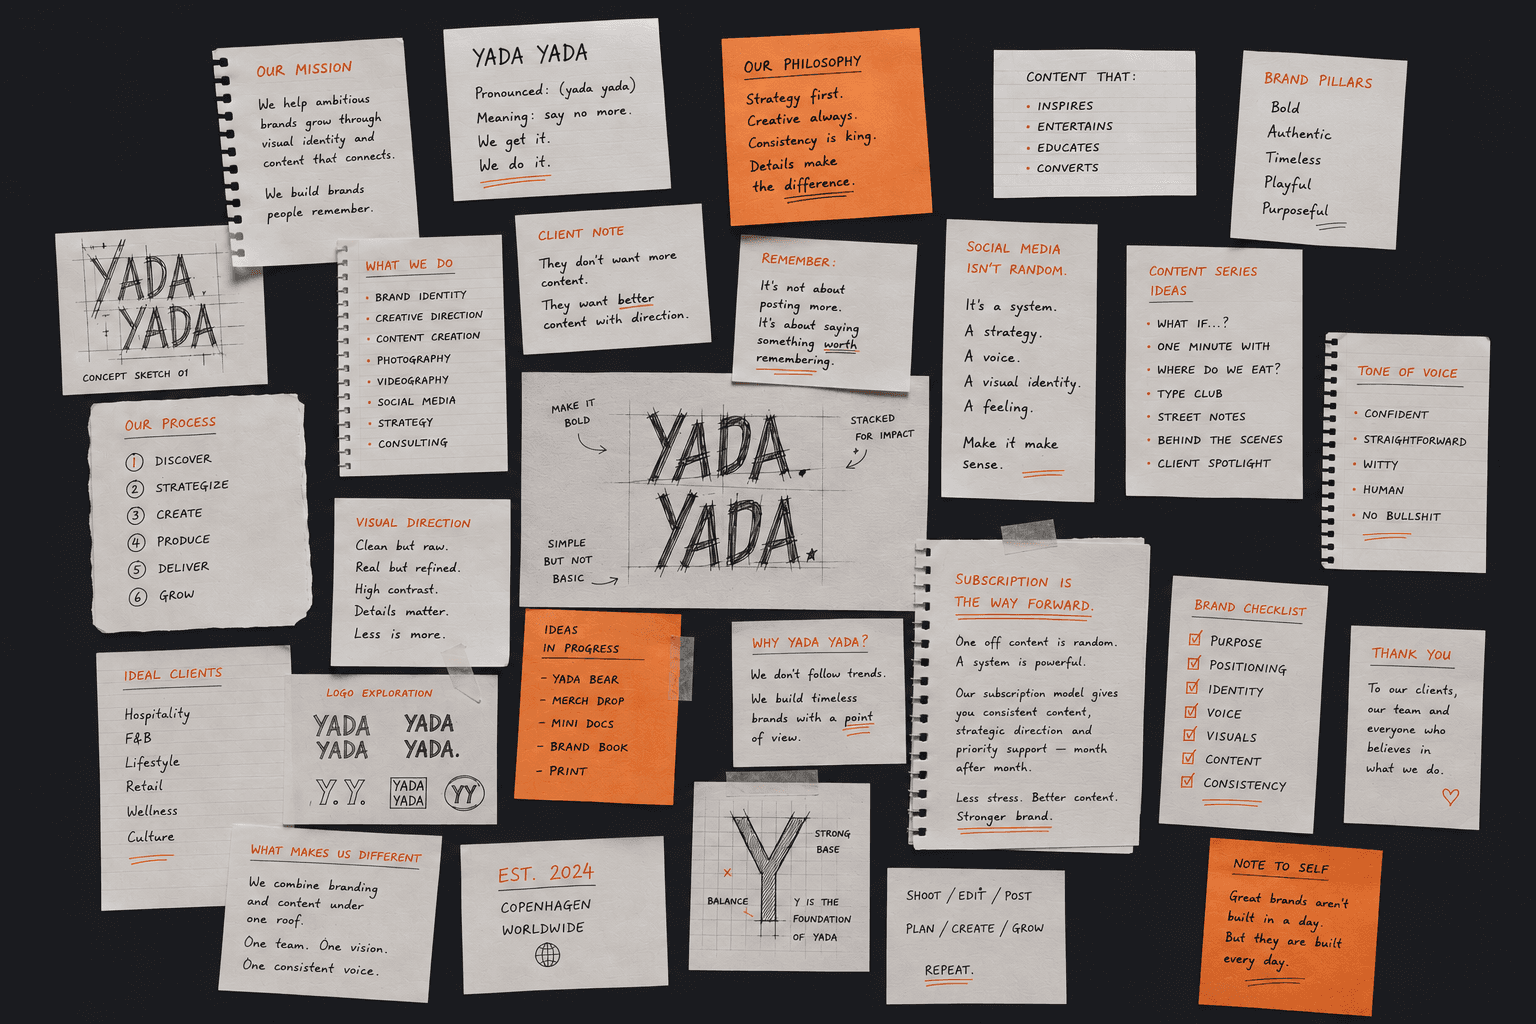 OUR MISSION
We help ambitious
brands grow through
visual identity and
content that connects.
We build brands
people remember.
YADA YADA
Pronounced: (yada yada)
Meaning: say no more.
We get it.
We do it.
OUR PHILOSOPHY
Strategy first.
Creative always.
Consistency is king.
Details make
the difference.
CONTENT THAT:
• INSPIRES
• ENTERTAINS
• EDUCATES
• CONVERTS
BRAND PILLARS
Bold
Authentic
Timeless
Playful
Purposeful
YADA
YADA
CONCEPT SKETCH 01
WHAT WE DO
• BRAND IDENTITY
• CREATIVE DIRECTION
• CONTENT CREATION
• PHOTOGRAPHY
• VIDEOGRAPHY
• SOCIAL MEDIA
• STRATEGY
• CONSULTING
CLIENT NOTE
They don't want more
content.
They want better
content with direction.
REMEMBER:
It's not about
posting more.
It's about saying
something worth
remembering.
SOCIAL MEDIA
ISN'T RANDOM.
It's a system.
A strategy.
A voice.
A visual identity.
A feeling.
Make it make
sense.
CONTENT SERIES
IDEAS
• WHAT IF...?
• ONE MINUTE WITH
• WHERE DO WE EAT?
• TYPE CLUB
• STREET NOTES
• BEHIND THE SCENES
• CLIENT SPOTLIGHT
TONE OF VOICE
• CONFIDENT
• STRAIGHTFORWARD
• WITTY
• HUMAN
• NO BULLSHIT
OUR PROCESS
1 DISCOVER
2 STRATEGIZE
3 CREATE
4 PRODUCE
5 DELIVER
6 GROW
MAKE IT
BOLD
STACKED
FOR IMPACT
YADA.
YADA.
SIMPLE
BUT NOT
BASIC
VISUAL DIRECTION
Clean but raw.
Real but refined.
High contrast.
Details matter.
Less is more.
IDEAL CLIENTS
Hospitality
F&B
Lifestyle
Retail
Wellness
Culture
LOGO EXPLORATION
YADA
YADA
YADA
YADA.
Y.Y.
YADA
YADA
YY
IDEAS
IN PROGRESS
- YADA BEAR
- MERCH DROP
- MINI DOCS
- BRAND BOOK
- PRINT
WHY YADA YADA?
We don't follow trends.
We build timeless
brands with a point
of view.
SUBSCRIPTION IS
THE WAY FORWARD.
One off content is random.
A system is powerful.
Our subscription model gives
you consistent content,
strategic direction and
priority support — month
after month.
Less stress. Better content.
Stronger brand.
BRAND CHECKLIST
PURPOSE
POSITIONING
IDENTITY
VOICE
VISUALS
CONTENT
CONSISTENCY
THANK YOU
To our clients,
our team and
everyone who
believes in
what we do.
WHAT MAKES US DIFFERENT
We combine branding
and content under
one roof.
One team. One vision.
One consistent voice.
EST. 2024
COPENHAGEN
WORLDWIDE
Y
STRONG
BASE
BALANCE
Y IS THE
FOUNDATION
OF YADA
SHOOT / EDIT / POST
PLAN / CREATE / GROW
REPEAT.
NOTE TO SELF
Great brands aren't
built in a day.
But they are built
every day.